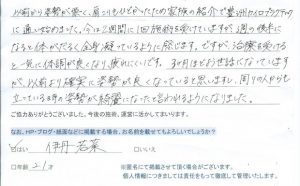 以前から姿勢が悪く、肩こりもひどかったため家族の紹介で豊洲カイロプラクティック
に通いはじめました。今は2週間に1回施術を受けていますが、週の後半に
なると体がだるく全身が凝っているように感じます。ですが治療を受ける
と一気に体調が良くなり、疲れにくいです。3か月ほどお世話になっています
が、以前より確実に姿勢が良くなっていると思いますし、周りの人からも
立っている時の姿勢が綺麗になったと言われるようになりました。
ご協力ありがとうございました。今後の技術、運営に活かしてまいります。
なお、HP・ブログ・紙面などに掲載する場合、お名前を載せてもよろしいでしょうか?
はい 伊丹若菜
□いいえ
□年齢 21才
※匿名にて掲載させて頂く場合がございます。
個人情報につきましては責任をもって徹底して管理いたします。